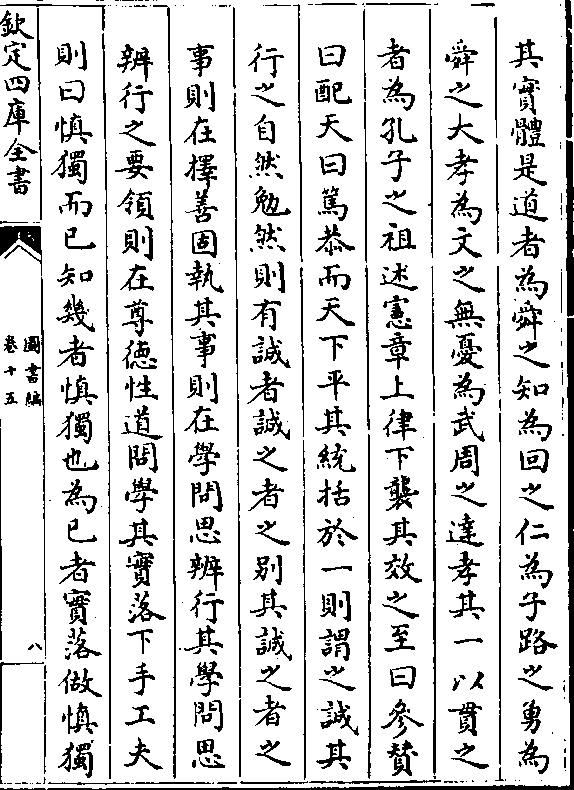 其實體是道者為舜之知為回之仁為子路之勇為
舜之大孝為文之無憂為武周之達孝其一以貫之
者為孔子之祖述憲章上律下襲其效之至曰參贊
曰配天曰篤恭而天下平其統括於一則謂之誠其
行之自然勉然則有誠者誠之者之别其誠之者之
事則在擇善固執其事則在學問思辨行其學問思
辨行之要領則在尊德性道問學其實落下手工夫
則曰慎獨而已知幾者慎獨也為已者實落做慎獨
欽定四庫全書
圖書編
卷十五
八